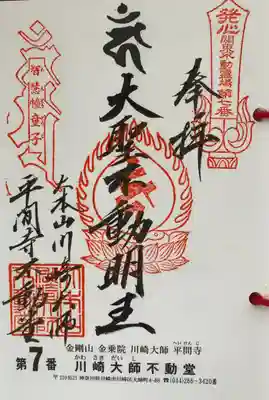 発心
關東三十六不動霊場
第七番
奉拝
大聖不動明王
智慧幢童子
大本山川崎大師
平間寺不動堂
金剛山 金乗院 川崎大師 平間寺
へいけんじ
かわさきだいし
第7番 川崎大師不動堂
〒210-8521 神奈川県川崎市川崎区大師町4-48 ☎(044)266-3420番